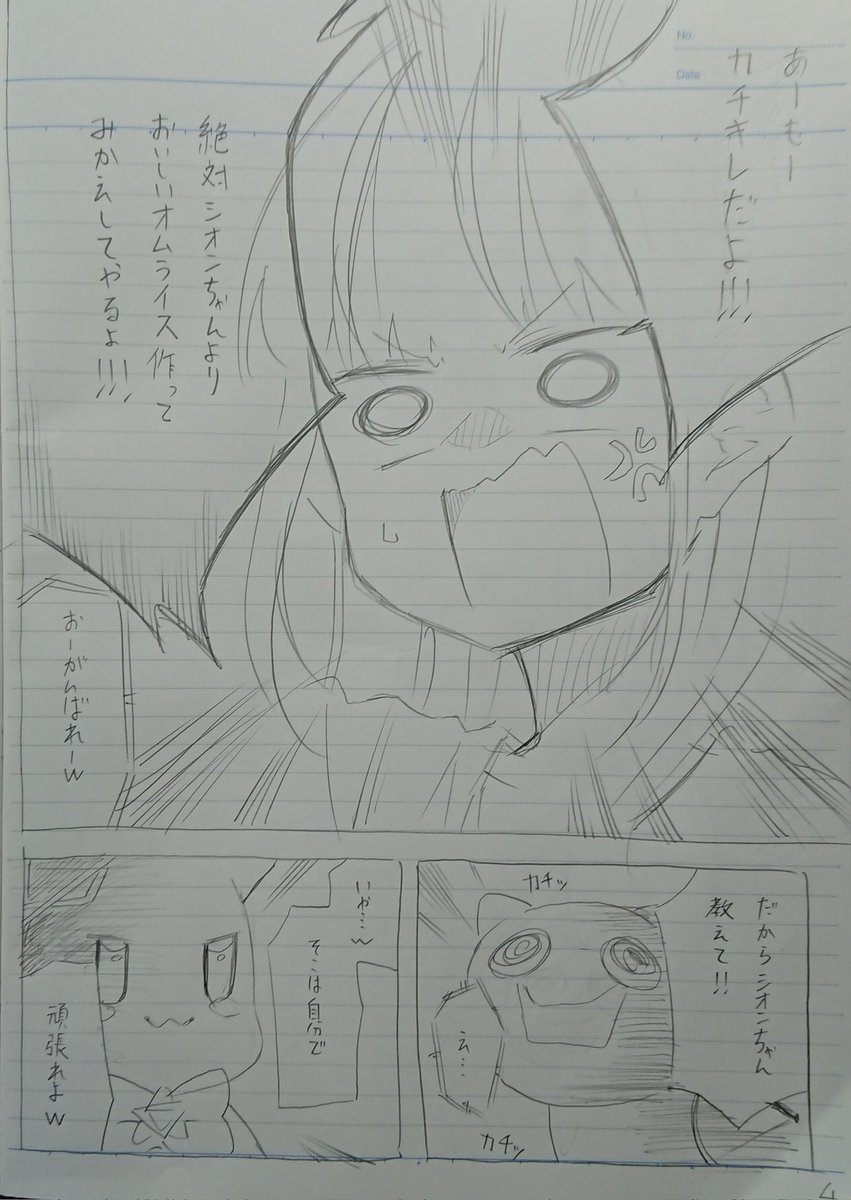 No.
Date
あーもー
カチキレだよ!!!
絶対シオンちゃんより
おいしいオムライス作って
みかえしてやるよ!!!
おーがんばれーw
だからシオンちゃん
教えて!!
カチッ
え…
カチッ
いや…w
そこは自分で
頑張れよw
4